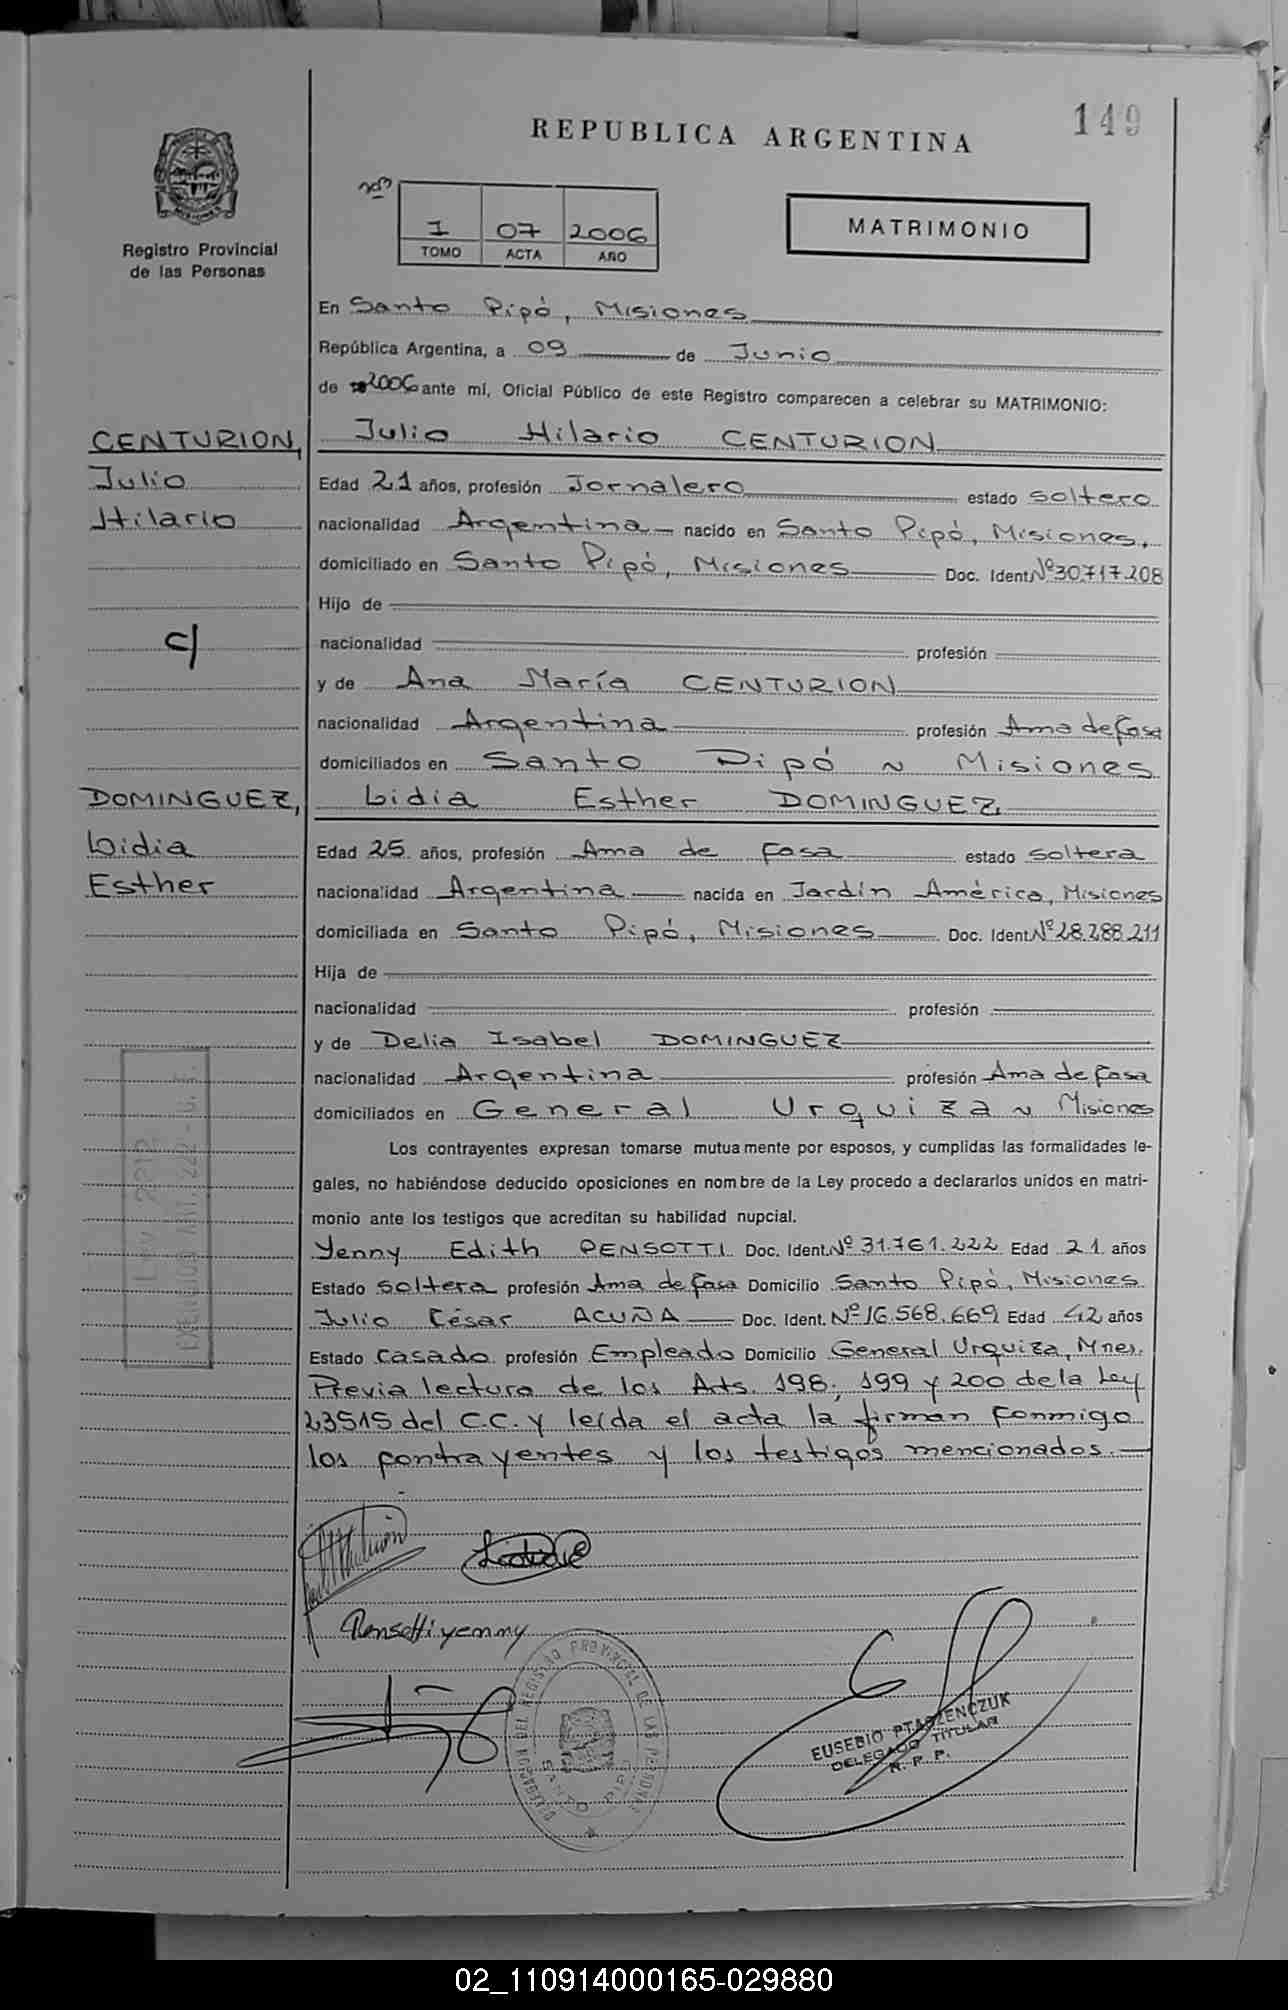 149
REPUBLICA ARGENTINA
Registro Provincial
de las Personas
1 07 2006
TOMO ACTA AÑO
MATRIMONIO
En Santo Pipó, Misiones
República Argentina, a 09 de Junio
de 2006 ante mí, Oficial Público de este Registro comparecen a celebrar su MATRIMONIO:
CENTURION,
Julio
Hilario
c/
DOMINGUEZ,
Lidia
Esther
Julio Hilario CENTURION
Edad 21 años, profesión Jornalero estado soltero
nacionalidad Argentina nacido en Santo Pipó, Misiones.
domiciliado en Santo Pipó, Misiones Doc. Ident. Nº 30.717.208
Hijo de
nacionalidad profesión
y de Ana María CENTURION
nacionalidad Argentina profesión Ama de Casa
domiciliados en Santo Pipó ~ Misiones
Lidia Esther DOMINGUEZ
Edad 25 años, profesión Ama de Casa estado soltera
nacionalidad Argentina nacida en Jardín América, Misiones
domiciliada en Santo Pipó, Misiones Doc. Ident. Nº 28.288.211
Hija de
nacionalidad profesión
y de Delia Isabel DOMINGUEZ
nacionalidad Argentina profesión Ama de Casa
domiciliados en General Urquiza ~ Misiones
Los contrayentes expresan tomarse mutuamente por esposos, y cumplidas las formalidades le-
gales, no habiéndose deducido oposiciones en nombre de la Ley procedo a declararlos unidos en matri-
monio ante los testigos que acreditan su habilidad nupcial.
Yenny Edith PENSOTTI Doc. Ident. Nº 31.761.222 Edad 21 años
Estado soltera profesión Ama de Casa Domicilio Santo Pipó, Misiones
Julio César ACUÑA Doc. Ident. Nº 16.568.669 Edad 42 años
Estado casado profesión Empleado Domicilio General Urquiza, Mnes.
Previa lectura de los Arts. 198, 199 y 200 de la Ley
23515 del C.C. y leída el acta la firman conmigo
los contrayentes y los testigos mencionados.
Pensotti yenny
DELEGACION DEL REGISTRO PROVINCIAL DE LAS PERSONAS
SANTO PIPO
EUSEBIO PTASZENCZUK
DELEGADO TITULAR
R. P. P.
02_110914000165-029880